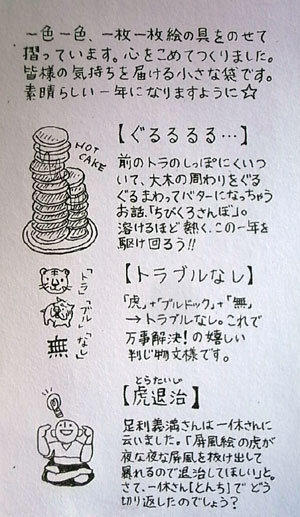 一色一色、一枚一枚絵の具をのせて
摺っています。心をこめてつくりました。
皆様の気持ちを届ける小さな袋です。
素晴らしい一年になりますように☆
HOT CAKE
【ぐるるるる…】
前のトラのしっぽにくいつ
いて、大木の周わりをぐる
ぐるまわってバターになっちゃう
お話、「ちびくろさんぼ」。
溶けるほど熱く、この一年を
駆け回ろう!!
「トラ」
「ブル」
「なし」
無
【トラブルなし】
「虎」+「ブルドック」+「無」
→トラブルなし。これで
万事解決!の嬉しい
判じ物文様です。
とらたいじ
【虎退治】
足利義満さんは一休さんに
云いました。「屏風絵の虎が
夜な夜な屏風を抜け出して
暴れるので退治してほしい」と。
さて、一休さん【とんち】でどう
切り返したのでしょう?